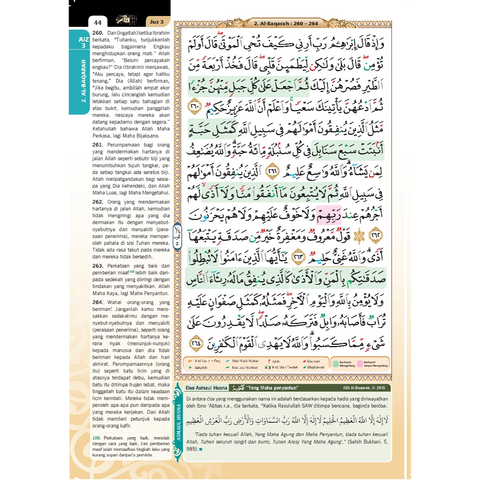 44
Juz 3
2. Al-Baqarah : 260 - 264
JUZ
3
2. AL-BAQARAH
260. Dan (ingatlah) ketika Ibrahim
berkata, "Tuhanku, tunjukkanlah
kepadaku bagaimana Engkau
menghidupkan orang mati." Allah
berfirman, "Belum percayakah
engkau?" Dia (Ibrahim) menjawab,
"Aku percaya, tetapi agar hatiku
tenang." Dia (Allah) berfirman,
"Jika begitu, ambillah empat ekor
burung, lalu cincanglah kemudian
letakkan setiap satu bahagian di
atas bukit, kemudian panggillah
mereka, nescaya mereka akan
datang kepadamu dengan segera."
Ketahuilah bahawa Allah Maha
Perkasa, lagi Maha Bijaksana.
261. Perumpamaan bagi orang
yang mendermakan hartanya di
jalan Allah seperti sebutir biji yang
menumbuhkan tujuh tangkai, pa-
da setiap tangkai ada seratus biji.
Allah melipatgandakan bagi siapa-
pa yang Dia kehendaki, dan Allah
Maha Luas, lagi Maha Mengetahui.
262. Orang yang mendermakan
hartanya di jalan Allah, kemudian
tidak mengiringi apa yang dia
dermakan itu dengan menyebut-
nyebutnya dan menyakiti (pera-
saan penerima), mereka memper-
oleh pahala di sisi Tuhan mereka.
Tidak ada rasa takut pada mereka
dan mereka tidak bersedih.
263. Perkataan yang baik dan
pemberian maaf lebih baik dari-
pada sedekah yang diiringi dengan
tindakan yang menyakitkan. Allah
Maha Kaya, lagi Maha Penyantun.
264. Wahai orang-orang yang
beriman! Janganlah kamu mero-
sakkan sedekahmu dengan me-
nyebut-nyebutnya dan menyakiti
(perasaan penerima), seperti orang
yang mendermakan hartanya ke-
rana riyak (menunjuk-nunjuk)
kepada manusia dan dia tidak
beriman kepada Allah dan hari
akhirat. Perumpamaannya (orang
itu) seperti batu licin yang di
atasnya terdapat debu, kemudian
batu itu ditimpa hujan lebat, maka
tinggallah batu itu dalam keadaan
licin kembali. Mereka tidak mem-
peroleh apa-apa pun daripada apa
yang mereka kerjakan. Dan Allah
tidak memberi petunjuk kepada
orang-orang kafir.
وَإِذْ قَالَ إِبْرَاهِيمُ رَبِّ أَرِنِي كَيْفَ تُحْيِ الْمَوْتَىٰ قَالَ أَوَلَمْ
تُؤْمِنْ قَالَ بَلَىٰ وَلَٰكِنْ لِيَطْمَئِنَّ قَلْبِي قَالَ فَخُذْ أَرْبَعَةً مِنَ
الطَّيْرِ فَصُرْهُنَّ إِلَيْكَ ثُمَّ اجْعَلْ عَلَىٰ كُلِّ جَبَلٍ مِنْهُنَّ جُزْءًا
ثُمَّ ادْعُهُنَّ يَأْتِينَكَ سَعْيًا وَاعْلَمْ أَنَّ اللَّهَ عَزِيزٌ حَكِيمٌ ٢٦٠
مَثَلُ الَّذِينَ يُنْفِقُونَ أَمْوَالَهُمْ فِي سَبِيلِ اللَّهِ كَمَثَلِ حَبَّةٍ
أَنْبَتَتْ سَبْعَ سَنَابِلَ فِي كُلِّ سُنْبُلَةٍ مِائَةُ حَبَّةٍ وَاللَّهُ يُضَاعِفُ
لِمَنْ يَشَاءُ وَاللَّهُ وَاسِعٌ عَلِيمٌ ٢٦١ الَّذِينَ يُنْفِقُونَ أَمْوَالَهُمْ
فِي سَبِيلِ اللَّهِ ثُمَّ لَا يُتْبِعُونَ مَا أَنْفَقُوا مَنًّا وَلَا أَذًى لَهُمْ
أَجْرُهُمْ عِنْدَ رَبِّهِمْ وَلَا خَوْفٌ عَلَيْهِمْ وَلَا هُمْ يَحْزَنُونَ
٢٦٢ قَوْلٌ مَعْرُوفٌ وَمَغْفِرَةٌ خَيْرٌ مِنْ صَدَقَةٍ يَتْبَعُهَا
أَذًى وَاللَّهُ غَنِيٌّ حَلِيمٌ ٢٦٣ يَا أَيُّهَا الَّذِينَ آمَنُوا لَا تُبْطِلُوا
صَدَقَاتِكُمْ بِالْمَنِّ وَالْأَذَىٰ كَالَّذِي يُنْفِقُ مَالَهُ رِئَاءَ النَّاسِ
وَلَا يُؤْمِنُ بِاللَّهِ وَالْيَوْمِ الْآخِرِ فَمَثَلُهُ كَمَثَلِ صَفْوَانٍ عَلَيْهِ
تُرَابٌ فَأَصَابَهُ وَابِلٌ فَتَرَكَهُ صَلْدًا لَا يَقْدِرُونَ عَلَىٰ
شَيْءٍ مِمَّا كَسَبُوا وَاللَّهُ لَا يَهْدِي الْقَوْمَ الْكَافِرِينَ ٢٦٤
Doa Asmaul Husna "Yang Maha penyantun" (QS Al-Baqarah, 2: 263)
ASMAUL HUSNA
Di antara doa yang menggunakan nama ini adalah berdasarkan kepada hadis yang diriwayatkan
oleh Ibnu 'Abbas r.a., dia berkata, "Ketika Rasulullah SAW ditimpa bencana, baginda berdoa:
Tiada tuhan kecuali Allah, Yang Maha Agung dan Maha Penyantun, tiada tuhan kecuali
Allah, Tuhan seluruh langit dan bumi, Tuhan Arasy Yang Maha Agung." (Sahih Bukhari: 5,
985).